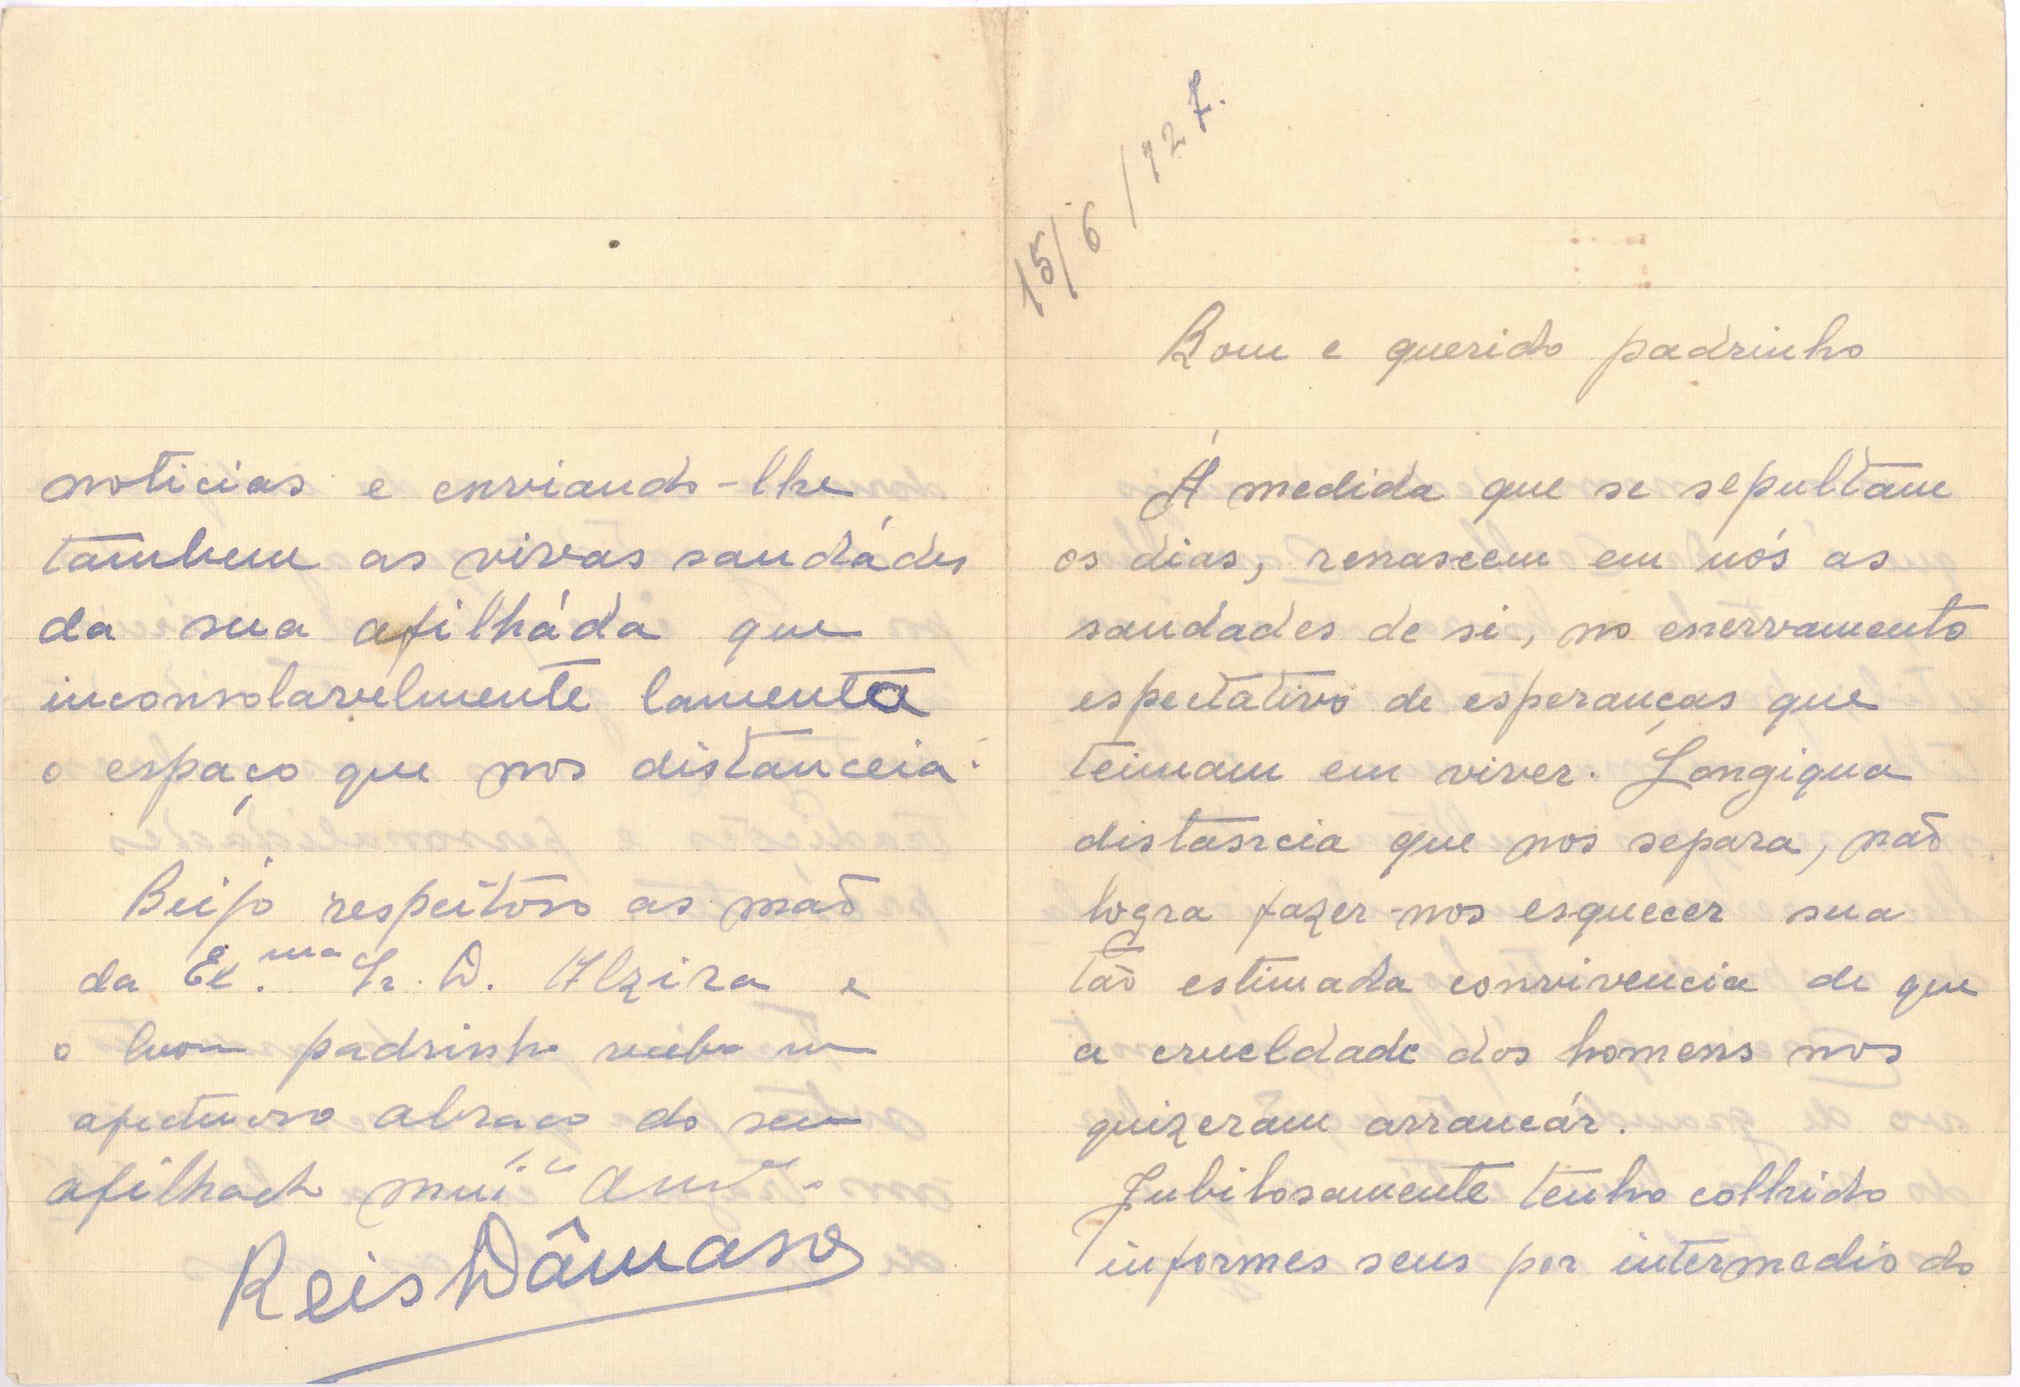 15/6/127.
Bom e querido padrinho
Á medida que se sepultam
os dias, renascem em nós as
saudades de si, no enervamento
espectativo de esperanças que
teimam em viver. Longiqua
distancia que nos separa, não
logra fazer-nos esquecer sua
tão estimada convivencia de que
a crueldade dos homens nos
quizeram arrancár.
Jubilosamente tenho colhido
informes seus por intermedio do
noticias e enviando-lhe
tambem as vivas saudádes
da sua afilháda que
inconsolavelmente lamenta
o espaço que nos distanceia.
Beijo respeitoso as mão
da Ex.ma Sr. D. Alzira e
o bom padrinho receba um
afectuoso abraço do seu
afilhado muito
Reis Dâmaso